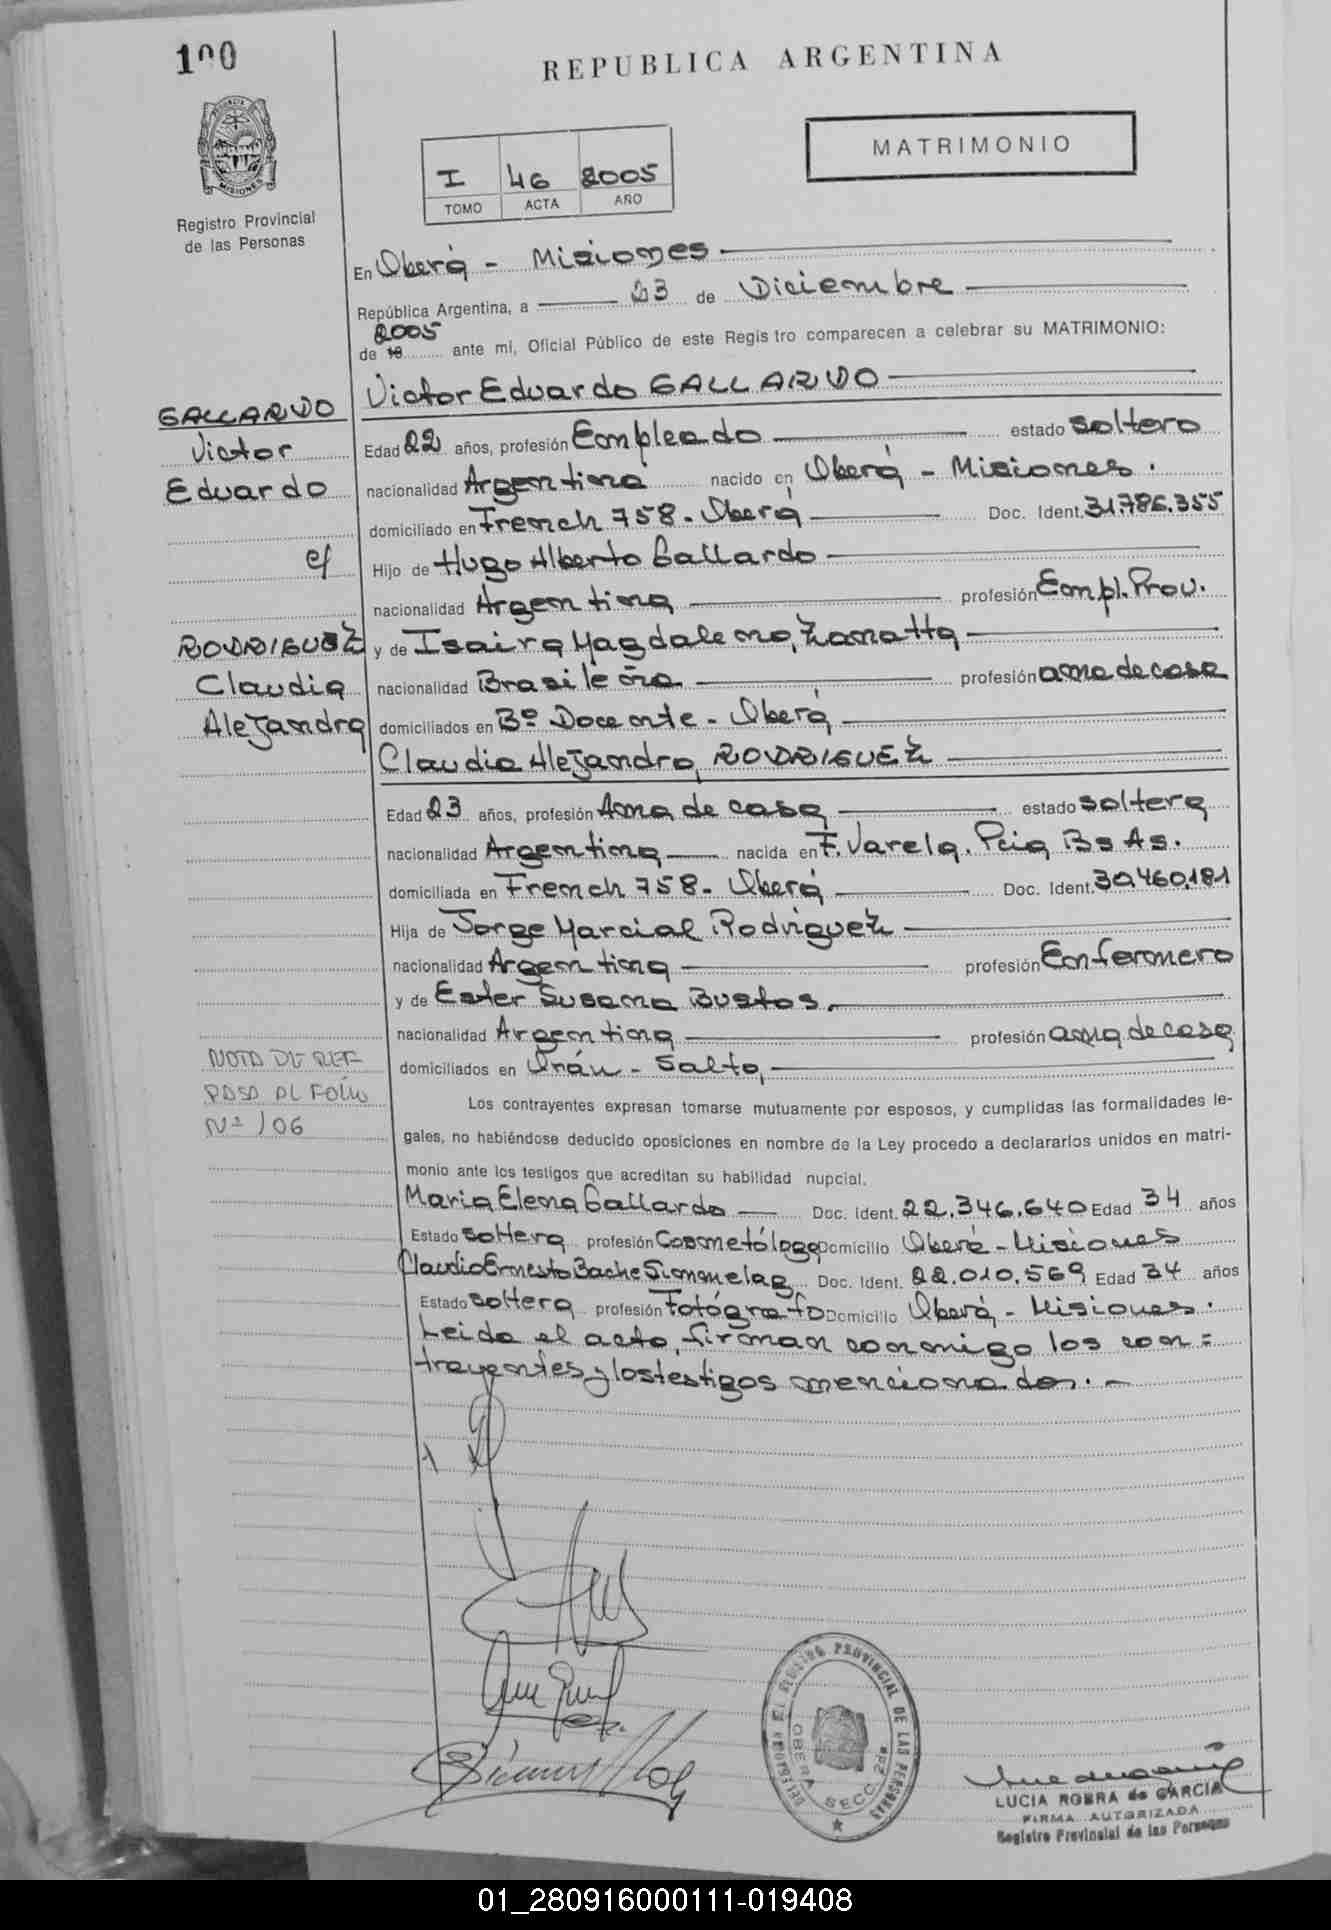 100
REPUBLICA ARGENTINA
PROVINCIA DE
MISIONES
Registro Provincial
de las Personas
I 46 2005
TOMO ACTA AÑO
MATRIMONIO
En Oberá - Misiones
República Argentina, a 23 de Diciembre
2005
de 19 ante mi, Oficial Público de este Registro comparecen a celebrar su MATRIMONIO:
Victor Eduardo GALLARDO
GALLARDO
Victor
Eduardo
c/
RODRIGUEZ
Claudia
Alejandra
Edad 22 años, profesión Empleado estado soltero
nacionalidad Argentina nacido en Oberá - Misiones.
domiciliado en French 758. Oberá Doc. Ident. 31.786.355
Hijo de Hugo Alberto Gallardo
nacionalidad Argentina profesión Empl. Prov.
y de Isaira Magdalena Zanatta
nacionalidad Brasileña profesión ama de casa
domiciliados en Bº Docente - Oberá
Claudia Alejandra RODRIGUEZ
Edad 23 años, profesión Ama de casa estado soltera
nacionalidad Argentina nacida en F. Varela. Pcia Bs As.
domiciliada en French 758. Oberá Doc. Ident. 30.460.181
Hija de Jorge Marcial Rodriguez
nacionalidad Argentina profesión Enfermero
y de Ester Susana Bustos.
nacionalidad Argentina profesión ama de casa
domiciliados en Orán - Salta
NOTA DE REF
PASA AL FOLIO
Nº 106
Los contrayentes expresan tomarse mutuamente por esposos, y cumplidas las formalidades le-
gales, no habiéndose deducido oposiciones en nombre de la Ley procedo a declararlos unidos en matri-
monio ante los testigos que acreditan su habilidad nupcial.
Maria Elena Gallardo Doc. Ident. 22.346.640 Edad 34 años
Estado soltera profesión Cosmetóloga Domicilio Oberá - Misiones
Claudio Ernesto Bache Simonelag Doc. Ident. 22.010.569 Edad 34 años
Estado soltera profesión Fotógrafo Domicilio Oberá - Misiones.
Leida el acta, firman conmigo los con=
trayentes y los testigos mencionados. -
DELEGACION DEL REGISTRO PROVINCIAL DE LAS PERSONAS
OBERA SECC. 2da
LUCIA ROBRA de GARCIA
FIRMA AUTORIZADA
Registro Provincial de las Personas
01_280916000111-019408